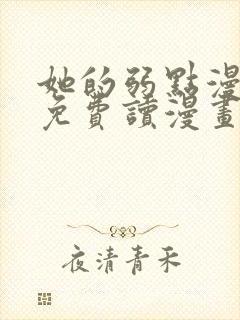 她的弱點漫
免費讀漫畫
夜清青禾